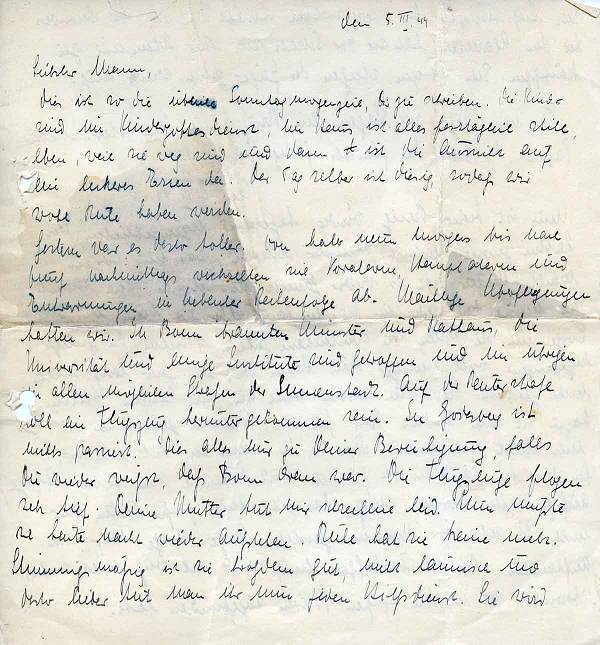 den 5. III. 44
Liebster Mann,
dies ist so die übliche Sonntagmorgenzeit, Dir zu schreiben. Die Kinder
sind im Kindergottesdienst, im Haus ist alles
eben, weil sie weg sind und dann ist die Aussicht auf
ein leckeres Essen da. Der Tag selber ist diesig, sodass wir
wohl Ruhe haben werden.
Gestern war es desto toller. Von halb neun morgens bis nach
fünf nachmittags wechselten sie Voralarm, Hauptalarm und
Entwarnungen in liebenter Reihenfolge ab. Überfliegungen
hatten wir. In Bonn brannten Münster und Rathaus, die
Universität und einige Institute sind getroffen und im übrigen
in allen möglichen Strassen der Innenstadt. Auf der Reuterstrasse
soll ein Flugzeug heruntergekommen sein. In Godesberg ist
nichts passiert. Dies alles nur zu Deiner Beruhigung, falls
Du wieder vorgibst, dass Bonn dran war. Die Flugzeuge flogen
sehr tief. Deine Mutter tut mir schrecklich leid. Nun musste
sie heute Nacht wieder aufstehen. Ruhe hat sie keine mehr.
Stimmungsmässig ist sie trotzdem gut, nicht launisch und
desto lieber tut man ihr nun jeden Hilfsdienst. Sie wird